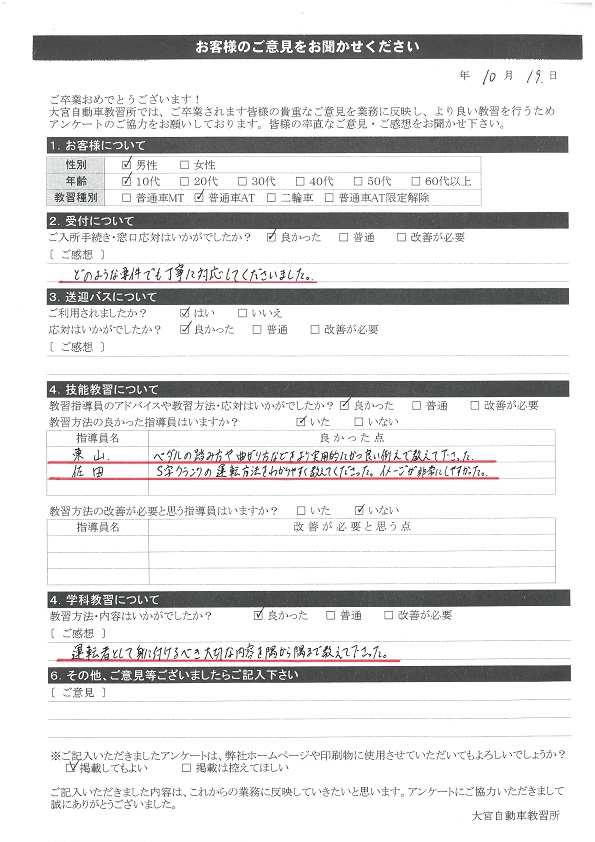 お客様のご意見をお聞かせください
年 10 月 19 日
ご卒業おめでとうございます！
大宮自動車教習所では、ご卒業されます皆様の貴重なご意見を業務に反映し、より良い教習を行うため
アンケートのご協力をお願いしております。皆様の率直なご意見・ご感想をお聞かせ下さい。
1. お客様について
性別 ☑ 男性 □ 女性
年齢 ☑ 10代 □ 20代 □ 30代 □ 40代 □ 50代 □ 60代以上
教習種別 □ 普通車MT ☑ 普通車AT □ 二輪車 □ 普通車AT限定解除
2. 受付について
ご入所手続き・窓口応対はいかがでしたか？ ☑ 良かった □ 普通 □ 改善が必要
［ ご感想 ］
どのような事件でも丁寧に対応してくださいました。
3. 送迎バスについて
ご利用されましたか？ ☑ はい □ いいえ
応対はいかがでしたか？ ☑ 良かった □ 普通 □ 改善が必要
［ ご感想 ］
4. 技能教習について
教習指導員のアドバイスや教習方法・応対はいかがでしたか？ ☑ 良かった □ 普通 □ 改善が必要
教習方法の良かった指導員はいますか？ ☑ いた □ いない
指導員名 良かった点
東山 ペダルの踏み方や曲がり方などをより実用的にかつ良い例えで教えて下さった。
佐田 S字クランクの運転方法をわかりやすく教えてくださった。イメージが非常にしやすかった。
教習方法の改善が必要と思う指導員はいますか？ □ いた ☑ いない
指導員名 改善が必要と思う点
4. 学科教習について
教習方法・内容はいかがでしたか？ ☑ 良かった □ 普通 □ 改善が必要
［ ご感想 ］
運転者として身に付けるべき大切な内容を隅から隅まで教えて下さった。
6. その他、ご意見等ございましたらご記入下さい
［ ご意見 ］
※ご記入いただきましたアンケートは、弊社ホームページや印刷物に使用させていただいてもよろしいでしょうか？
☑ 掲載してもよい □ 掲載は控えてほしい
ご記入いただきました内容は、これからの業務に反映していきたいと思います。アンケートにご協力いただきまして
誠にありがとうございました。
大宮自動車教習所